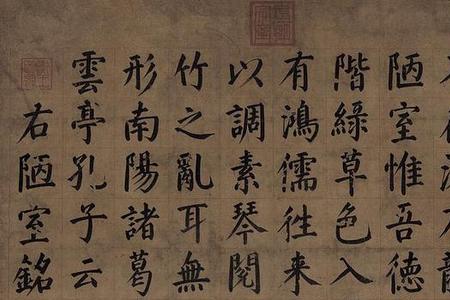 陋室惟吾德
階綠草色入
有鴻儒徃来
以調素琴閱
竹之亂耳無
形南陽諸葛
雲亭孔子云
右陋室銘